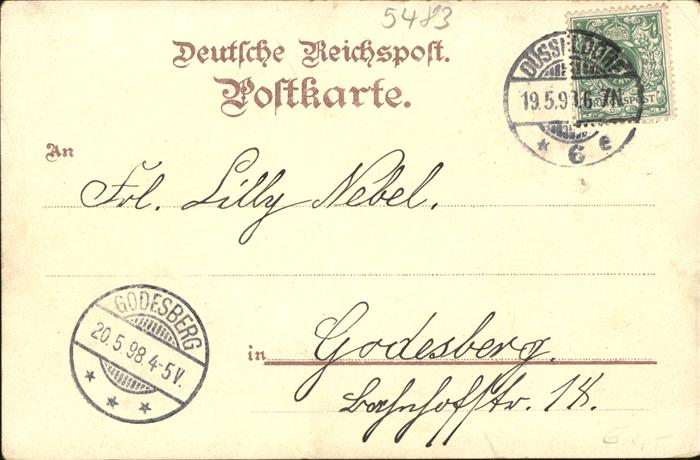 5483
Deutsche Reichspost.
Postkarte.
DÜSSELDORF
19.5.98. 6-7N.
* 6 e
REICHSPOST
An
Frl. Lilly Nebel.
GODESBERG
20.5.98.4-5V.
in Godesberg.
Bahnhofstr. 14.
6.-